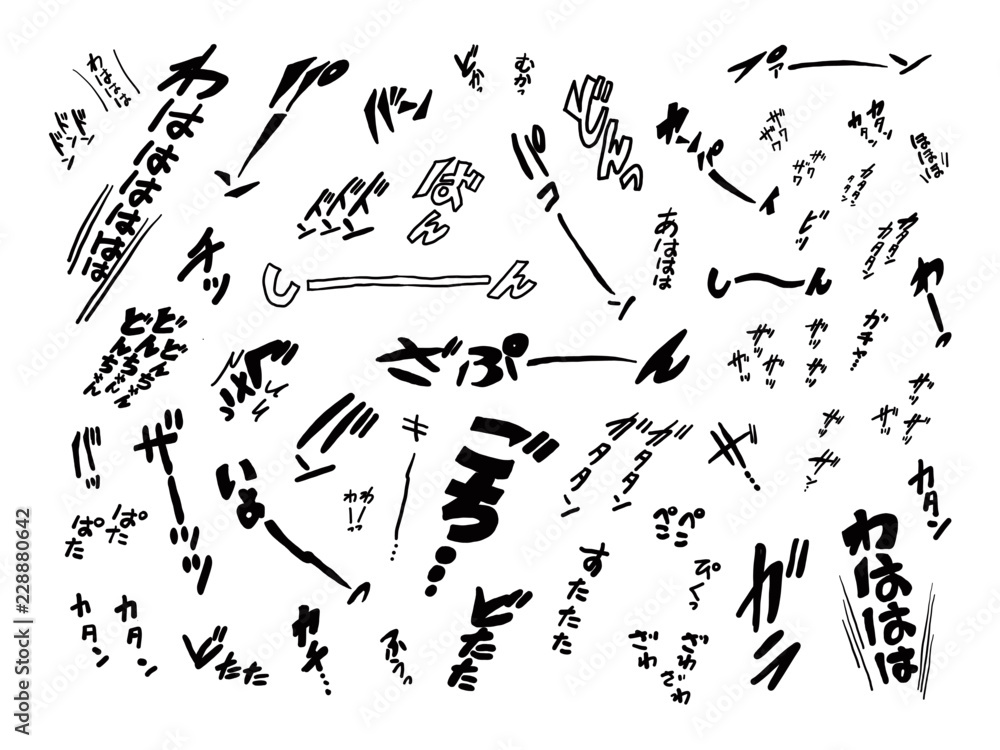 わははは
ドンドンドン
わはははははは
パーン
バーン
ビかっ
むかっ
どんっ
パァーン
ザワザワ
ザワ
カタン
カタン
カタタン
ほほほ
ズンズンズン
ぼん
パコーン
あははは
ビッ
カタタン
カタタン
チッ
しーーん
し〜〜ん
わーっ
どんどん
ざぷーーん
ザッザッザッ
ザッザッ
ガチャ…
ザッザッザッ
バッ
ザーッッ
ガーン
いよ
キ…
わーっ
わー!!
ごちっ…
ガタタン
ガタタン
ザッ
ザッ
カタン
ぱた
ぱた
すたたた
ぺこ
ぺこ
ぴくっ
ガラ
わははは
カタン
カタン
ビたた
ふっっ
ビたたた
ざわ
ざわ
ざわ
Adobe Stock | #228880642